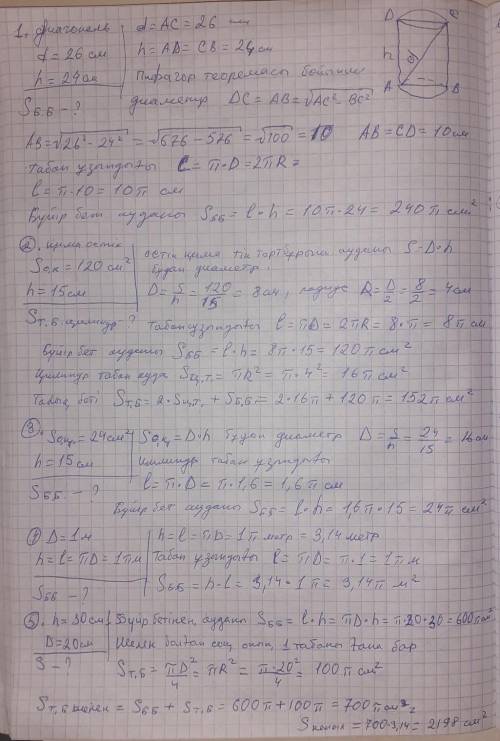 1. диагональ d = AC = 26 см
d = 26 см h = AD = CB = 24 см
h = 24 см Пифагор теоремасы бойынша
Sб.б - ? диаметр DC = AB = √AC² - BC²
D C h d A B
AB = √26² - 24² = √676 - 576 = √100 = 10 AB = CD = 10 см
табан ұзындығы C = π·D = 2πR =
l = π·10 = 10π см
Бүйір бет ауданы Sбб = l·h = 10π·24 = 240π см²
2. қима осьтік остік қима тік төртбұрыш ауданы S = D·h
Sо.қ = 120 см² бұдан диаметр
h = 15 см D = S/h = 120/15 = 8 см, радиус R = D/2 = 8/2 = 4 см
Sт.б. цилиндр ? табан ұзындығы l = πD = 2πR = 8·π = 8π см
Бүйір бет ауданы Sбб = l·h = 8π·15 = 120π см²
Цилиндр табан ауда Sц.т. = πR² = π·4² = 16π см²
Толық беті Sт.б = 2·Sц.т. + Sб.б = 2·16π + 120π = 152π см²
3. Sоқ. = 24 см² Sоқ = D·h бұдан диаметр D = S/h = 24/15 = 1,6 см
h = 15 см цилиндр табан ұзындығы
Sбб. - ? l = π·D = π·1,6 = 1,6π см
Бүйір бет ауданы Sбб = l·h = 1,6π·15 = 24π см²
4 D = 1 м h = l = πD = 1π метр = 3,14 метр
h = l = πD = 1π м Табан ұзындығы l = πD = π·1 = 1π м
Sбб - ? Sбб = h·l = 3,14·1π = 3,14π м²
5. h = 30 см Бүйір бетінің ауданы Sбб = l·h = πD·h = π·20·30 = 600π см²
D = 20 см болған соң оның 1 табаны ғана бар
S - ? Sт.б = πD²/4 = πR² = π·20²/4 = 100π см²
Sт.б = Sбб + Sт.б = 600π + 100π = 700π см²
S = 700·3,14 = 2198 см²